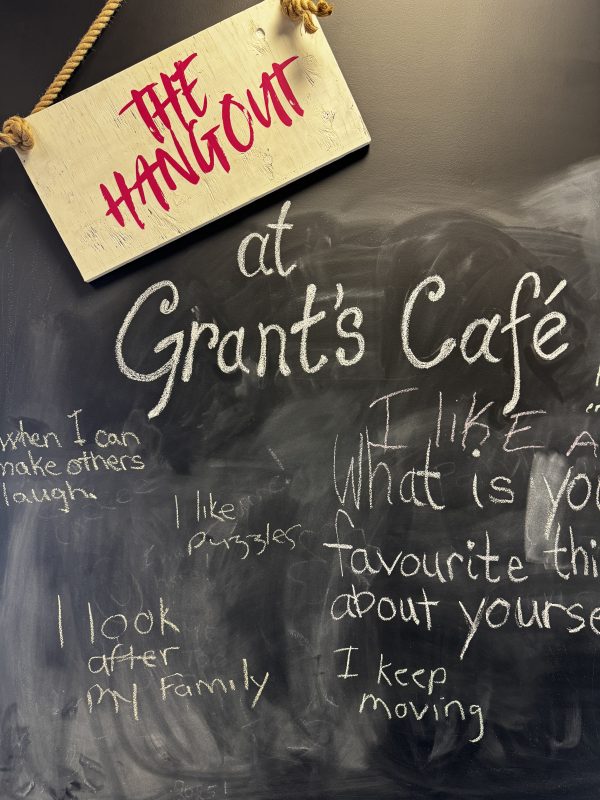 THE
HANGOUT
at
Grant's Café
I LIKE A
when I can
make others
laugh.
I like
puzzles
What is you
favourite thi
about yourse
I look
after
my Family
I keep
moving